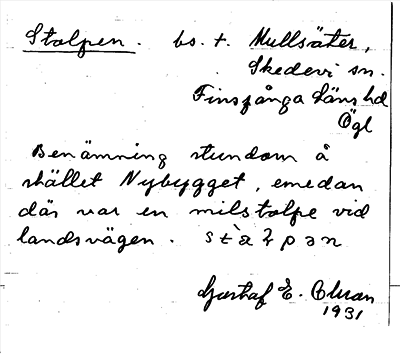 Stolpen. bs. t. Mullsäter,
Skedevi sn.
Finspånga läns hd
Ögl
Benämning stundom å
stället Nybygget, emedan
där var en milstolpe vid
landsvägen.
Gustaf E.
1931